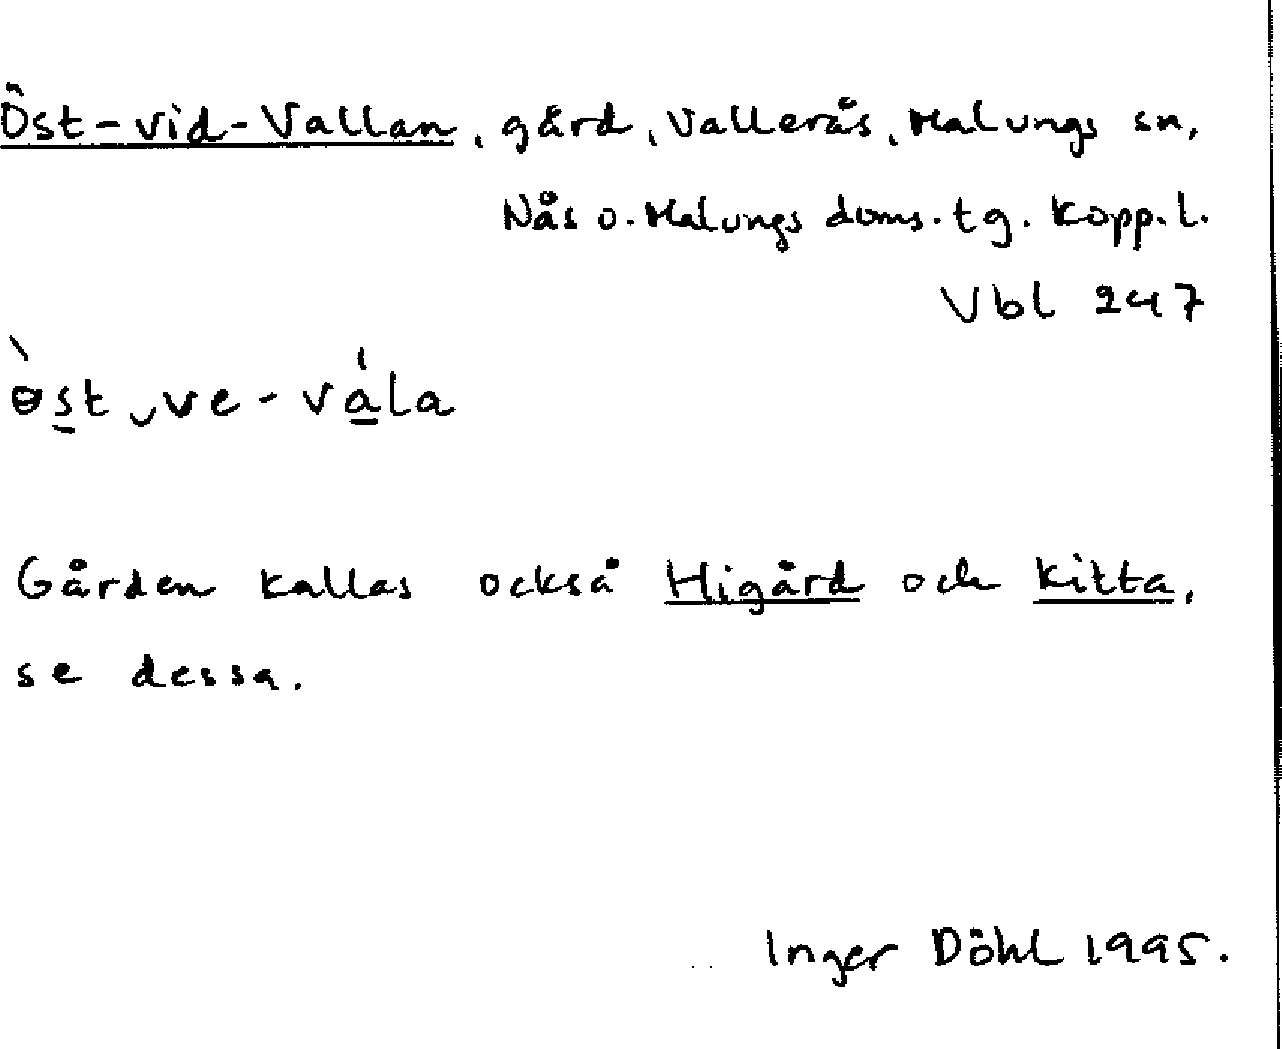 Öst-vid-Vallan, gård, Vallerås, Malungs sn,
Nås o. Malungs doms. tg. Kopp. l.
Vbl 247
ɵ̀st‿ve-vá̱la
Gården kallas också Higård och Kitta,
se dessa.
Inger Döhl 1995.